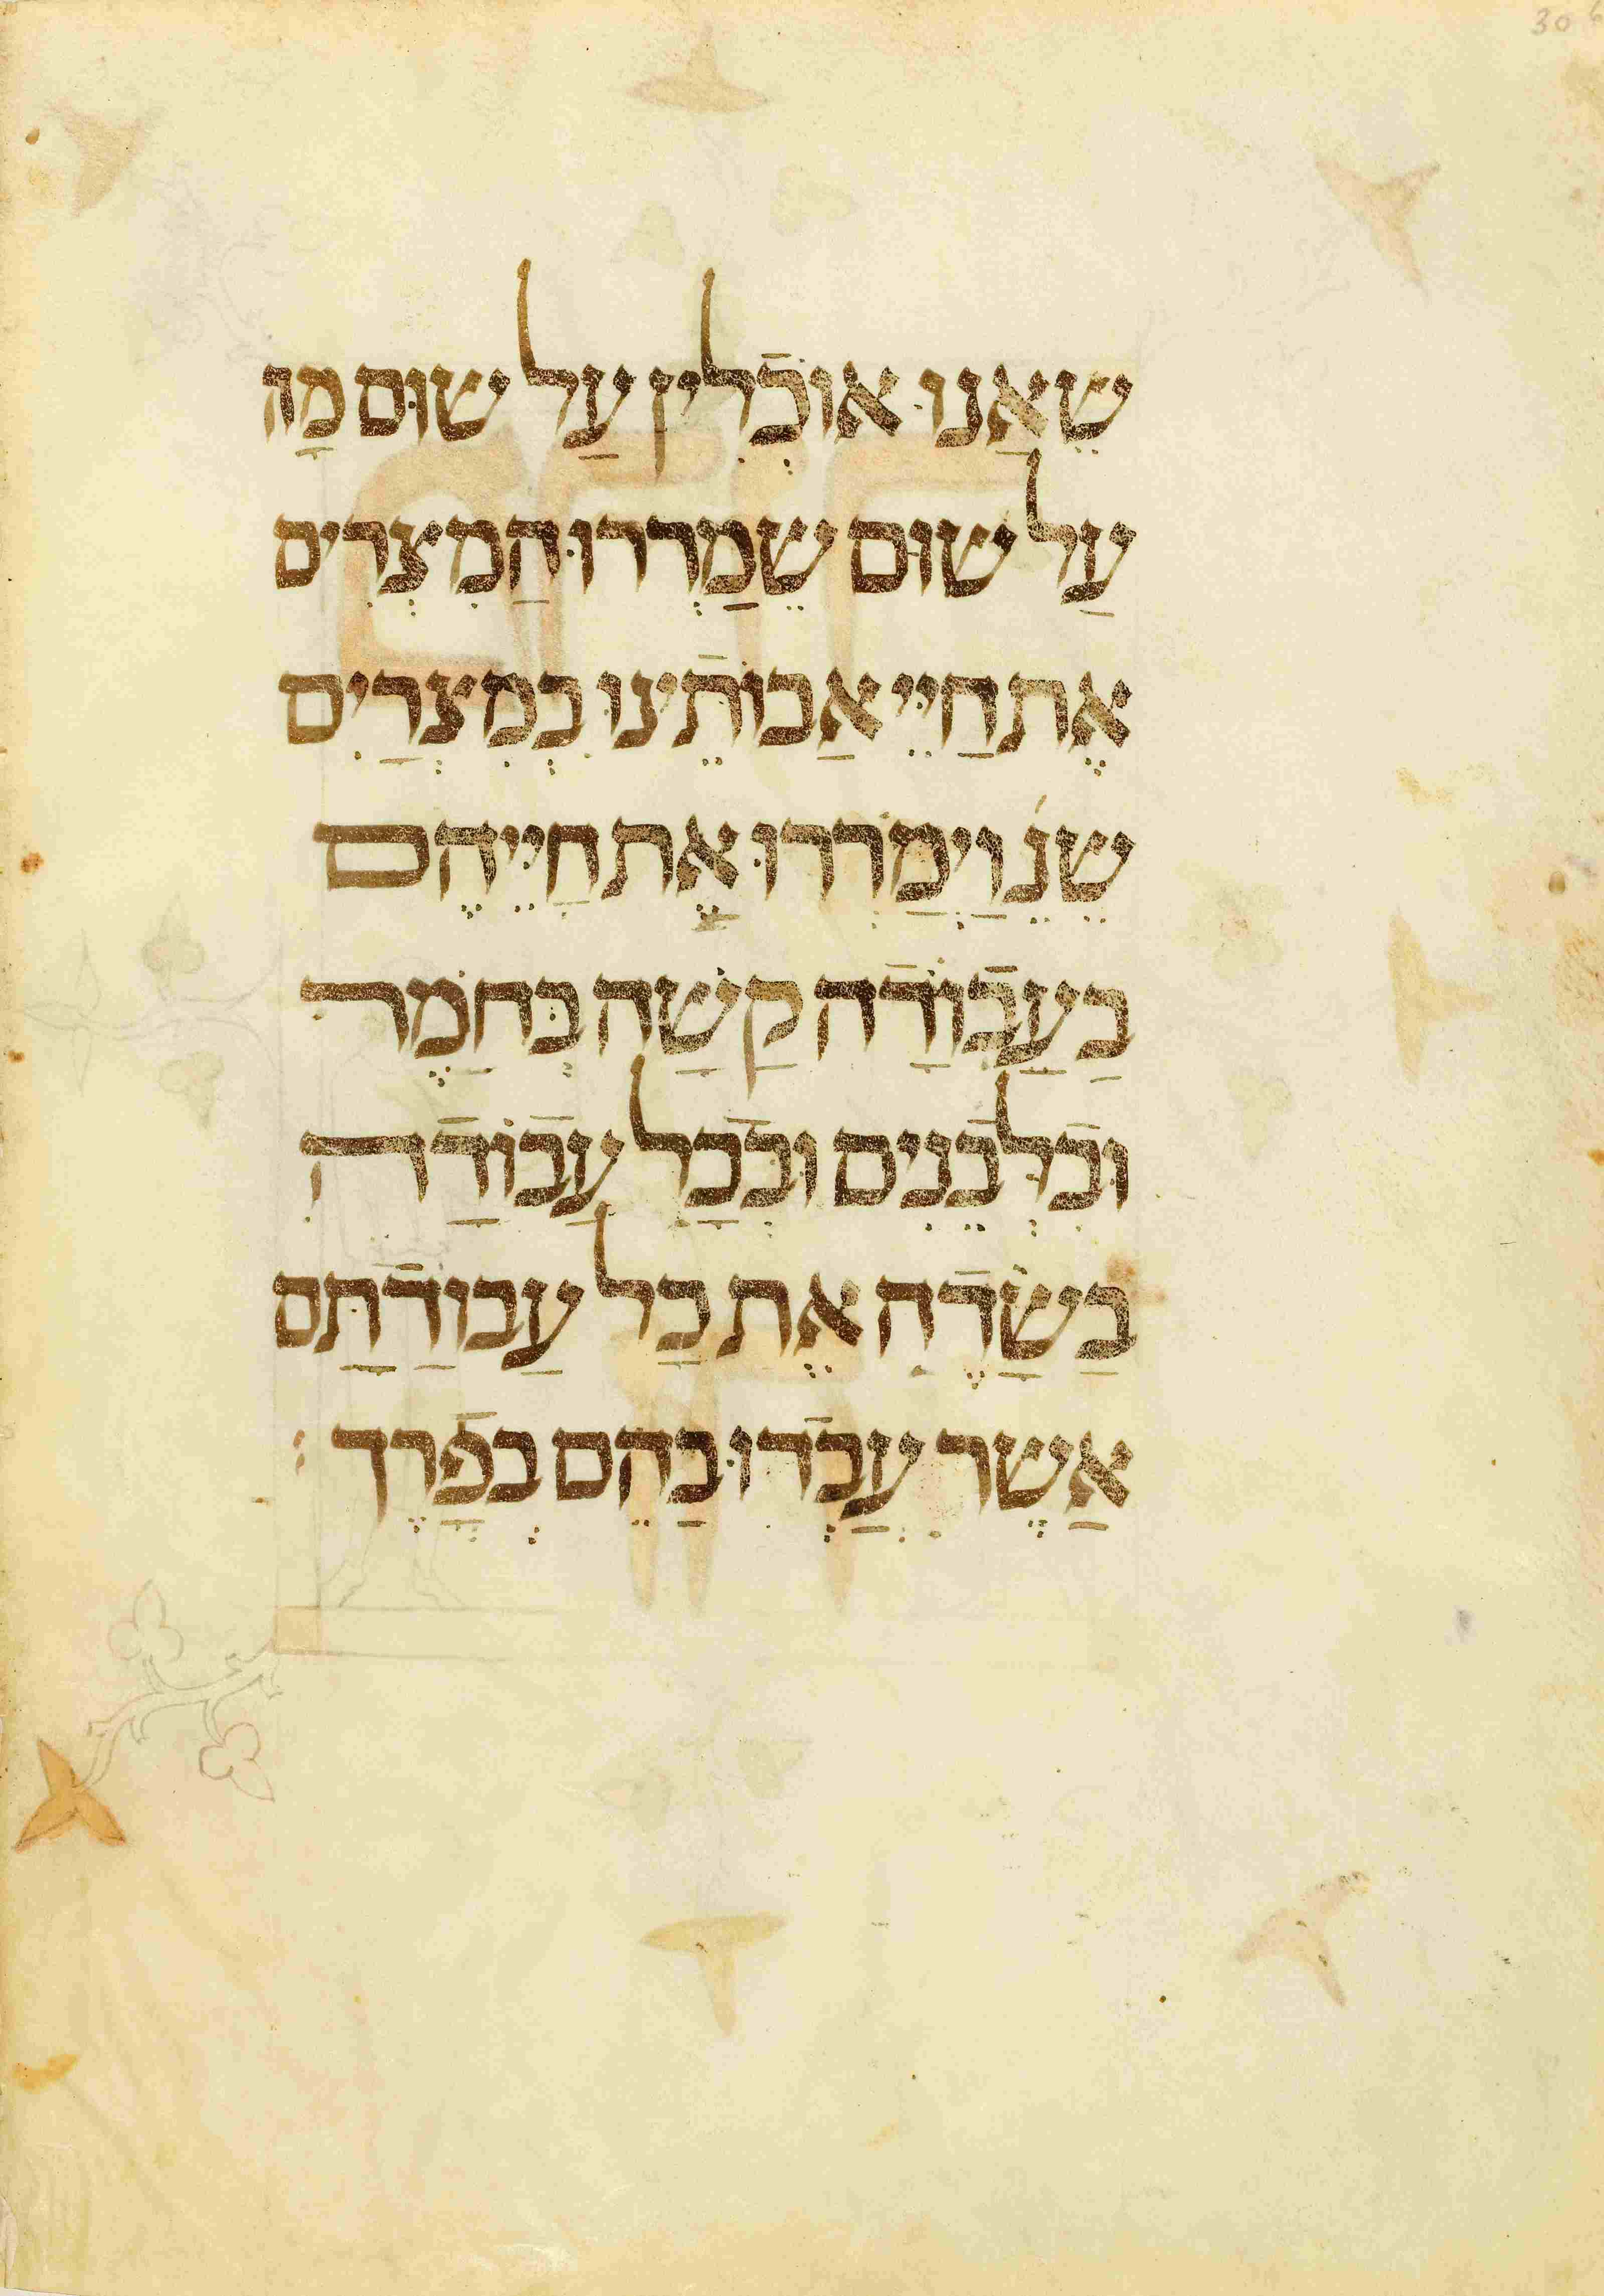 30
שֶׁאַנוּ אוֹכְלִין עַל שׁוּם מָה
עַל שׁוּם שֶׁמֵרְרוּ הַמִצְרִים
אֶת חַיֵּי אֲבוֹתֵינוּ בְּמִצְרַיִם
שֶׁנֵ׳ וַיְמָרְרוּ אֶת חַיֵּיהֶם
בַּעֲבוֹדָה קָשָׁה בְּחֹמֶר
וּבִלְבֵנִים וּבְכָל עֲבוֹדָה
בַּשָּׂדֶה אֶת כָּל עֲבוֹדָתָם
אֲשֶׁר עָבְדוּ בָהֶם בְּפָרֶךְ׃